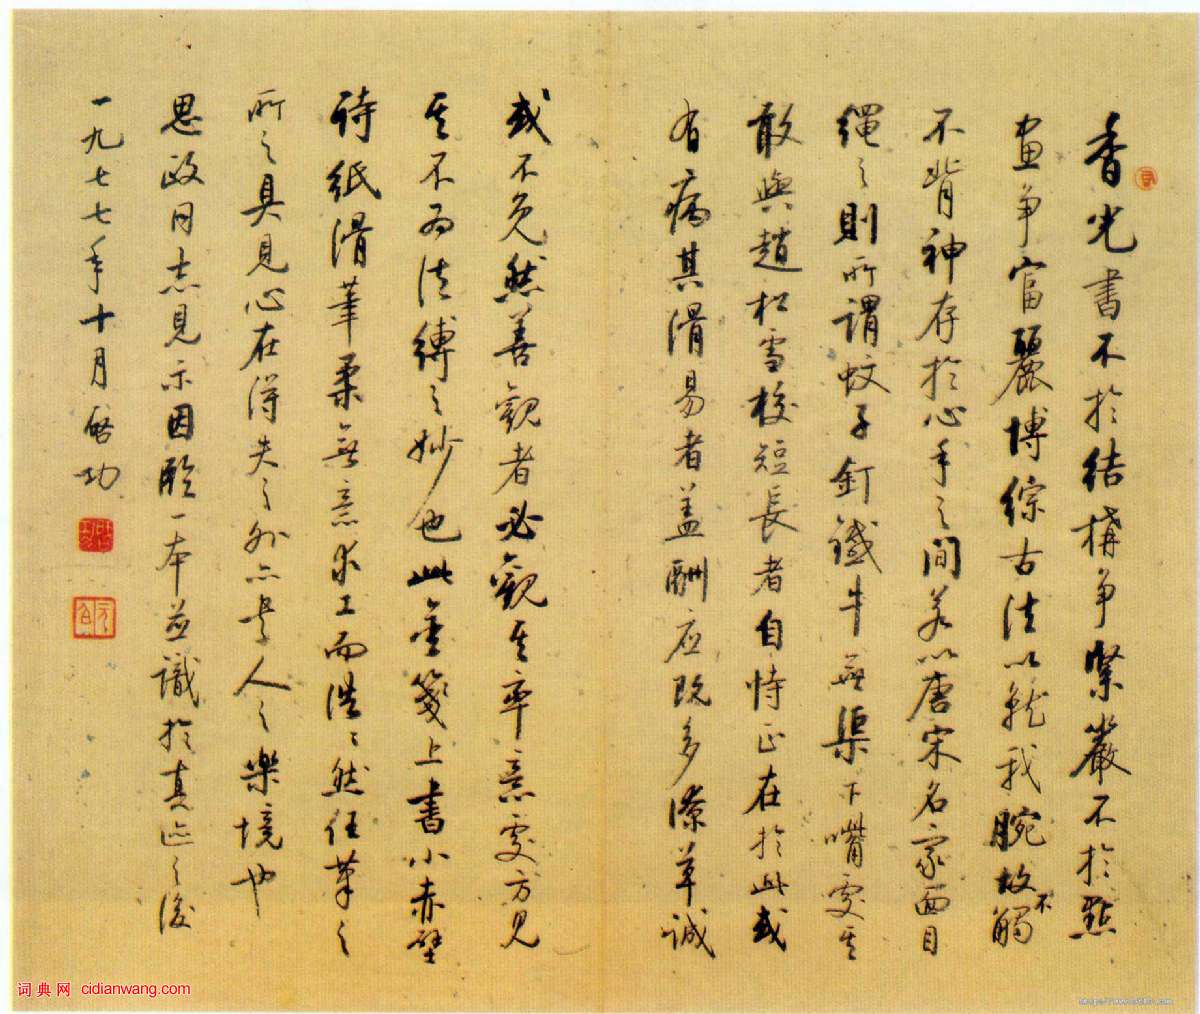 香光書不於結構爭緊嚴不於點
畫爭富麗博綜古法以就我腕故不觸
不背神存於心手之間若以唐宋名家面目
繩之則所謂蚊子釘鐵牛無渠下嘴處其
敢與趙松雪校短長者自恃正在於此或
有病其滑易者蓋酬应既多潦草誠
或不免然善觀者必觀其率意處方見
其不为法縛之妙也此金箋上書小赤壁
詩紙滑筆柔無意求工而浩浩然任筆之
所之具見心在得失之外亦是人之樂境也
思政同志見示因臨一本並識於真迹之後
一九七七年十月啓功
词典网 cidianwang.com